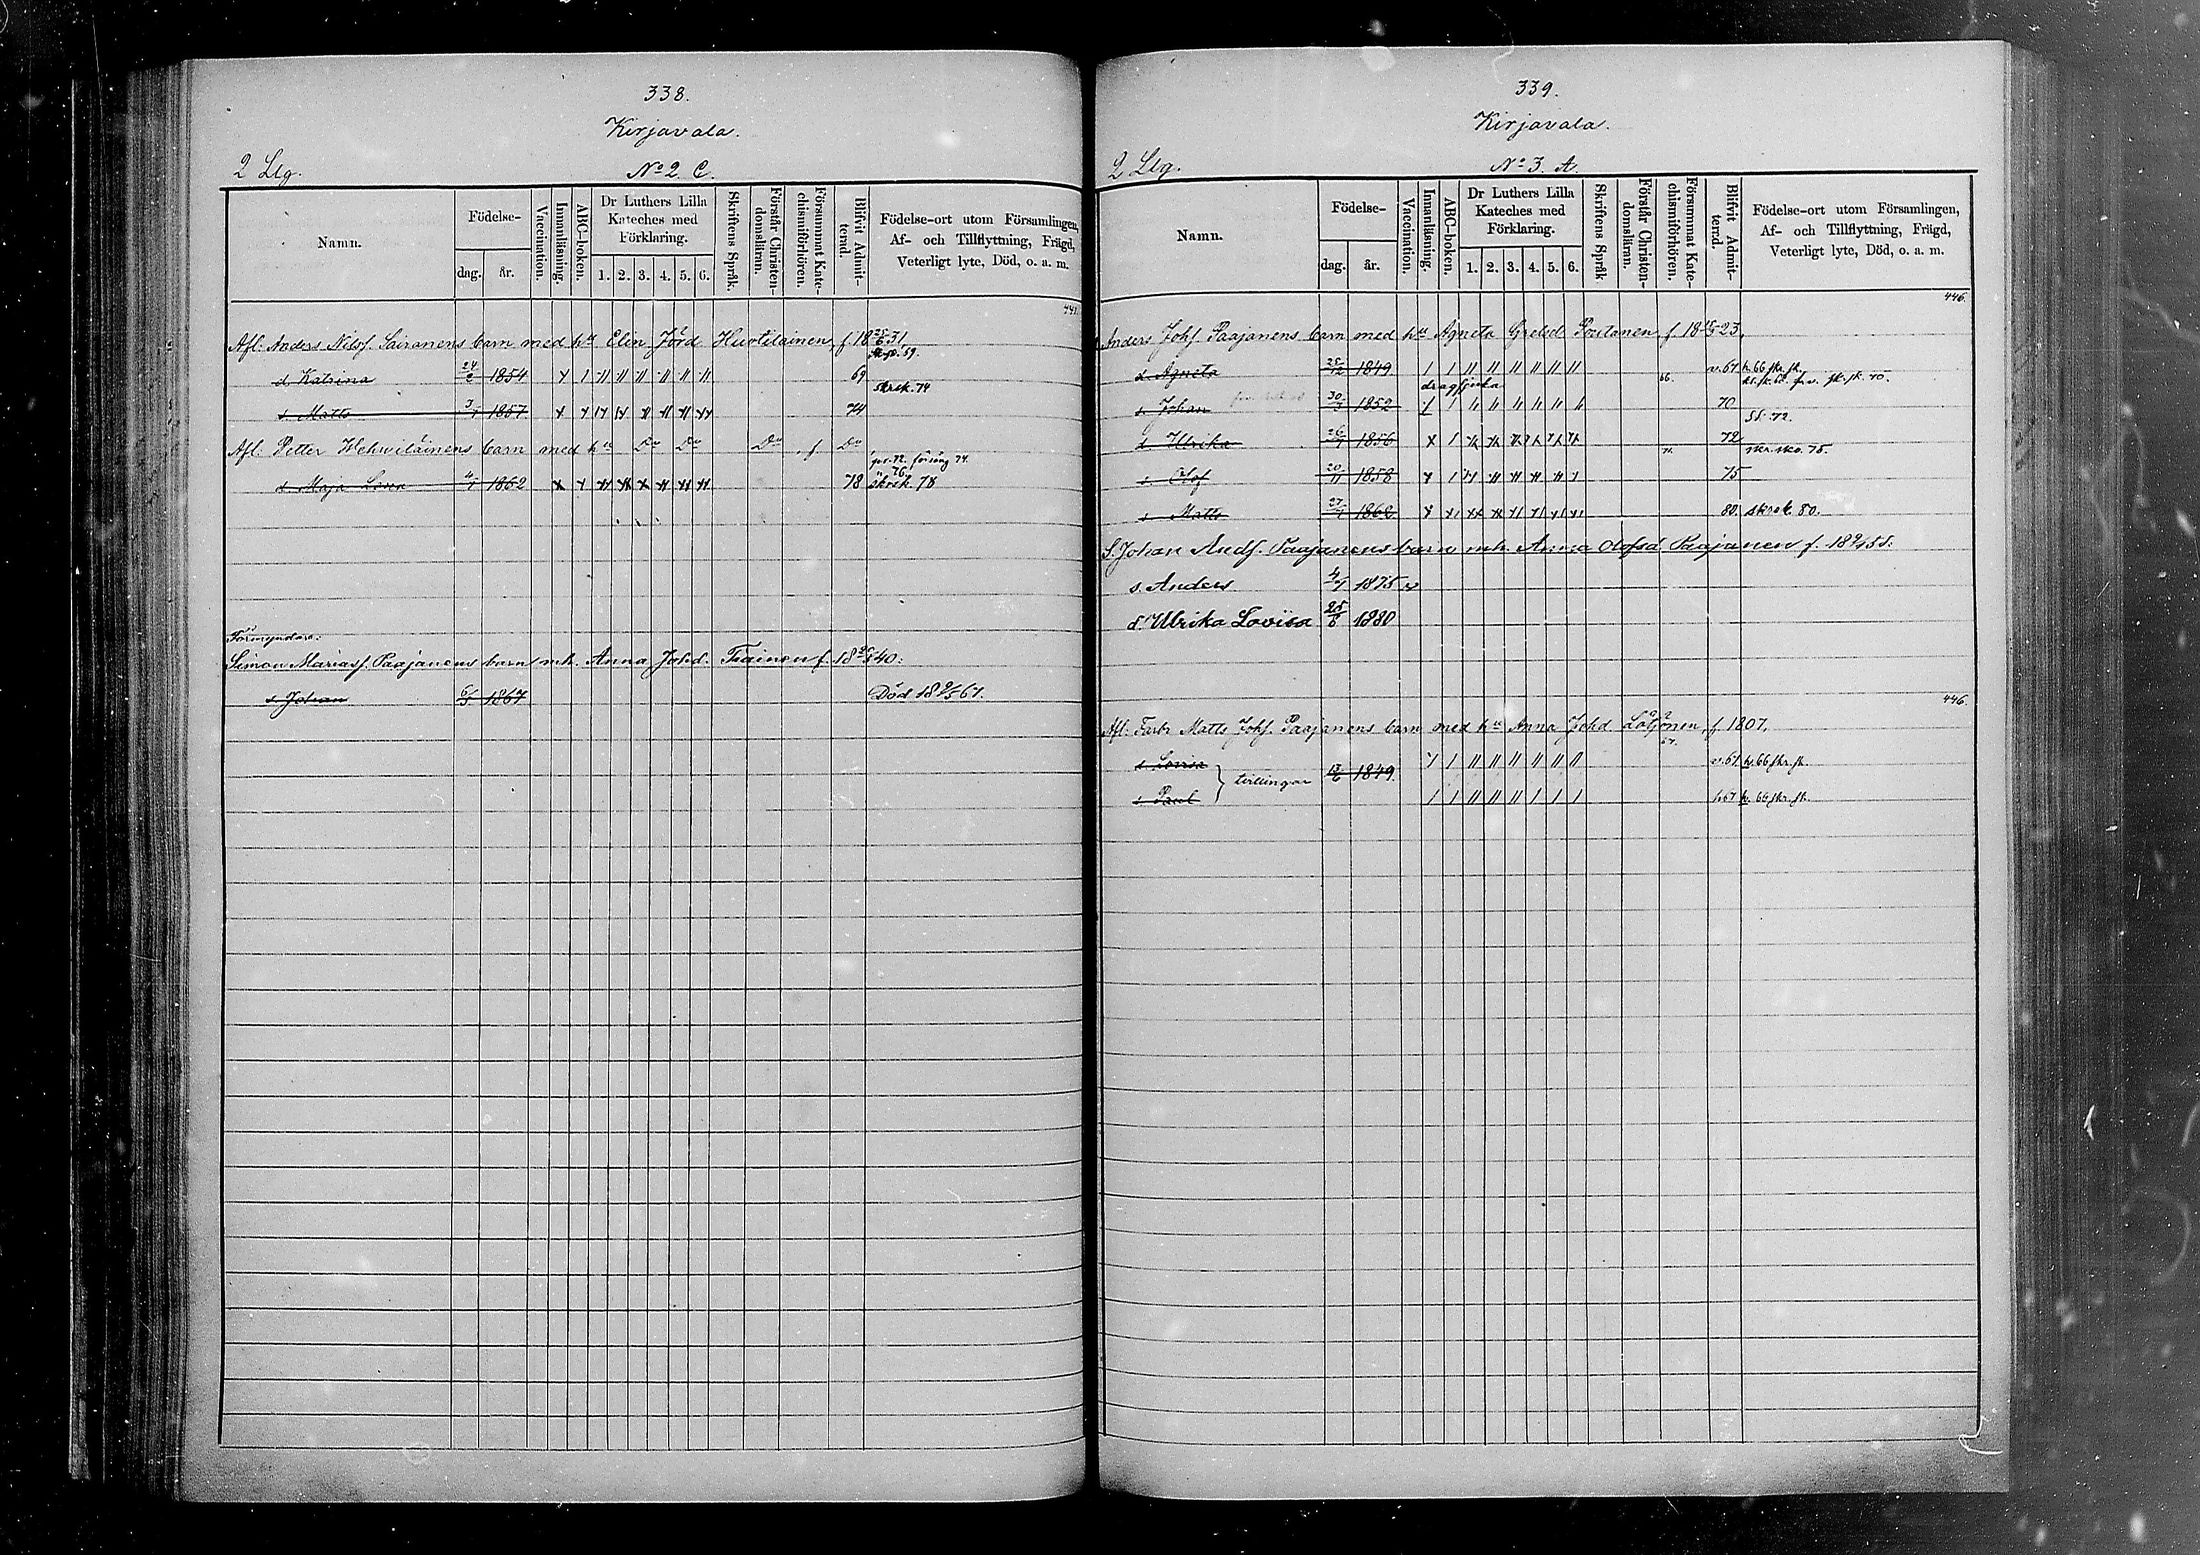 338.
Kirjavala.
2 Llg.
No 2. C.
Namn.
Födelse-
dag.
år.
Vaccination.
Innanläsning.
ABC-boken.
Dr Luthers Lilla Kateches med Förklaring.
1. 2. 3. 4. 5. 6.
Skriftens Språk.
Förstår Christendomsläran.
Försummat Katechismiförhören.
Blifvit Admitterad.
Födelse-ort utom Församlingen, Af- och Tillflyttning, Frägd, Veterligt lyte, Död, o. a. m.
441.
Afl. Anders Nilsf. Sairanens barn med hu Elin Jörd. Huvtilainen, f. 18 25/6 31,
d. Katrina 24/2 1854 69
skrsk. 74
s. Matts 3/1 1857 74
Afl. Petter Wehwiläinens barn med hu Do Do Do , f Do
d. Maja Lovisa 4/1 1862 78 skrsk 78
Förmyndare:
Simon Mariasf. Paajanens barn mh. Anna Johd. f. 18 40:
s. Johan 6/5 1867 Död 18 9/5 67.
339.
Kirjavala.
2 Llg.
No 3. A.
Namn.
Födelse-
dag.
år.
Vaccination.
Innanläsning.
ABC-boken.
Dr Luthers Lilla Kateches med Förklaring.
1. 2. 3. 4. 5. 6.
Skriftens Språk
Förstår Christendomsläran.
Försummat Katechismiförhören.
Blifvit Admitterad.
Födelse-ort utom Församlingen, Af- och Tillflyttning, Frägd, Veterligt lyte, Död, o. a. m.
446.
Anders Johf. Paajanens barn med hu Agneta Grelsd Poutanen, f. 18 23,
d. Agneta 25/12 1849. v. 67 h. 66 skr. sk.
66.
dragsjuka
s. Johan 30/3 1852 70
ss. 72.
d. Ulrika 26/1 1856 72
71. skr. sko. 75.
s. Olof 20/11 1858 75
s. Matts 27/1 1862 80. skrsk. 80.
S. Johan Andf. Paajanens barn mh. Anna Olofsd Paajanen f. 18 9/4 55:
s. Anders 4/1 1875 v
d. Ulrika Lovisa 25/6 1880
446.
Afl. Farbr Matts Johf. Paajanens barn med hu Anna Johd Lötjönen, f. 1807,
67.
s. Lovisa v. 67 h. 66 skr. sk.
tvillingar 13/6 1849.
s. Paul h 67 h. 66 skr. sk.